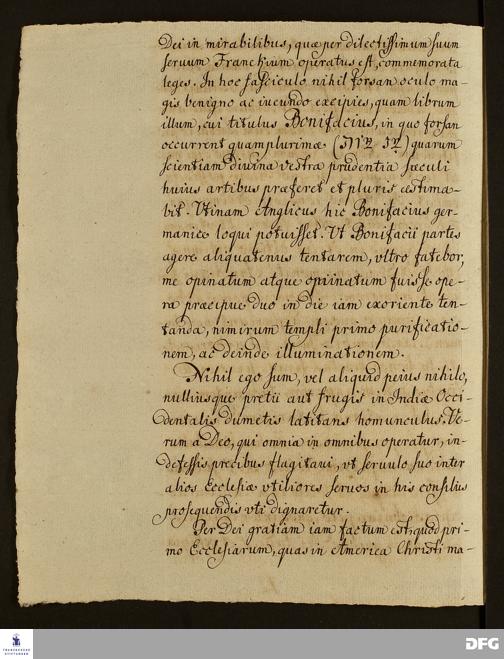 Dei in mirabilibus, quæ per dilectissimum suum
seruum Franckium operatus est, commemorata
leges. In hoc fasciculo nihil forsan oculo ma-
gis benigno ac iucundo excipies, quam librum
illum, cui titulus Bonifacius, in quo forsan
occurrent quamplurimæ quarum
scientiam diuina vestra prudentia sæculi
huius artibus præferet et pluris æstima-
bit. Vtinam Anglicus hic Bonifacius ger-
manice loqui potuisset. Vt Bonifacii partes
agere aliquatenus tentarem, vltro fatebor,
me opinatum atque opiinatum fuisse ope-
ra præcipue duo in die iam exoriente ten-
tanda, nimirum templi primo purificatio-
nem, ac deinde illuminationem.
Nihil ego sum, vel aliquid peius nihilo,
nulliusque pretii aut frugis in Indiæ Occi-
dentalis dumetis latitans homunculus. Ve-
rum a Deo, qui omnia in omnibus operatur, in-
defessis precibus flagitaui, vt seruulo suo inter
alios Ecclesiæ vtiliores seruos in his consiliis
prosequendis vti dignaretur.
Per Dei gratiam iam factum est, quod pri-
mo Ecclesiarum, quas in America Christi ma-
FRANCKESCHE
STIFTUNGEN
DFG